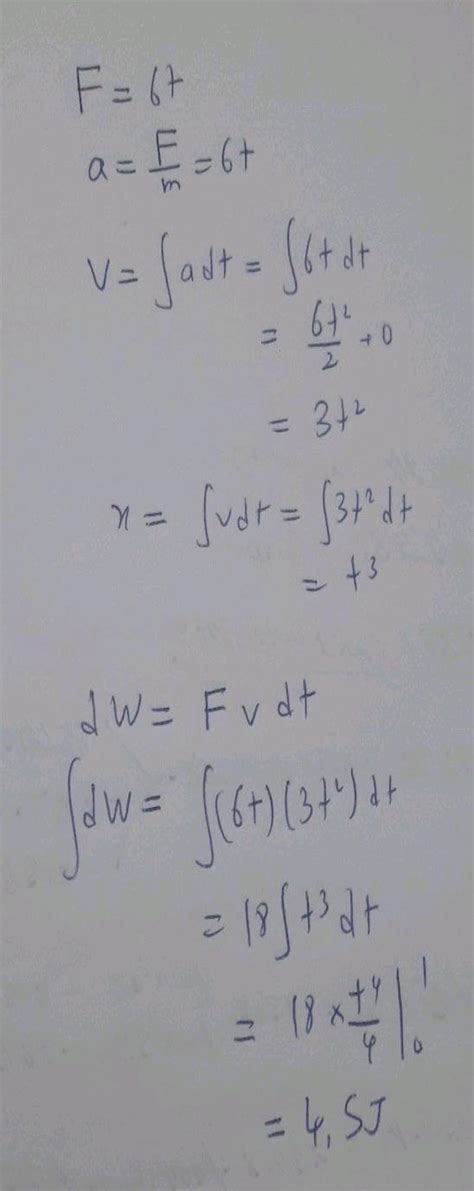 F = 6t
a = F/m = 6t
v = ∫adt = ∫6t dt
= 6t²/2 + 0
= 3t²
x = ∫vdt = ∫3t² dt
= t³
dW = F v dt
∫dW = ∫(6t)(3t²) dt
= 18∫t³ dt
= 18 × t⁴/4 |₀¹
= 4.5J